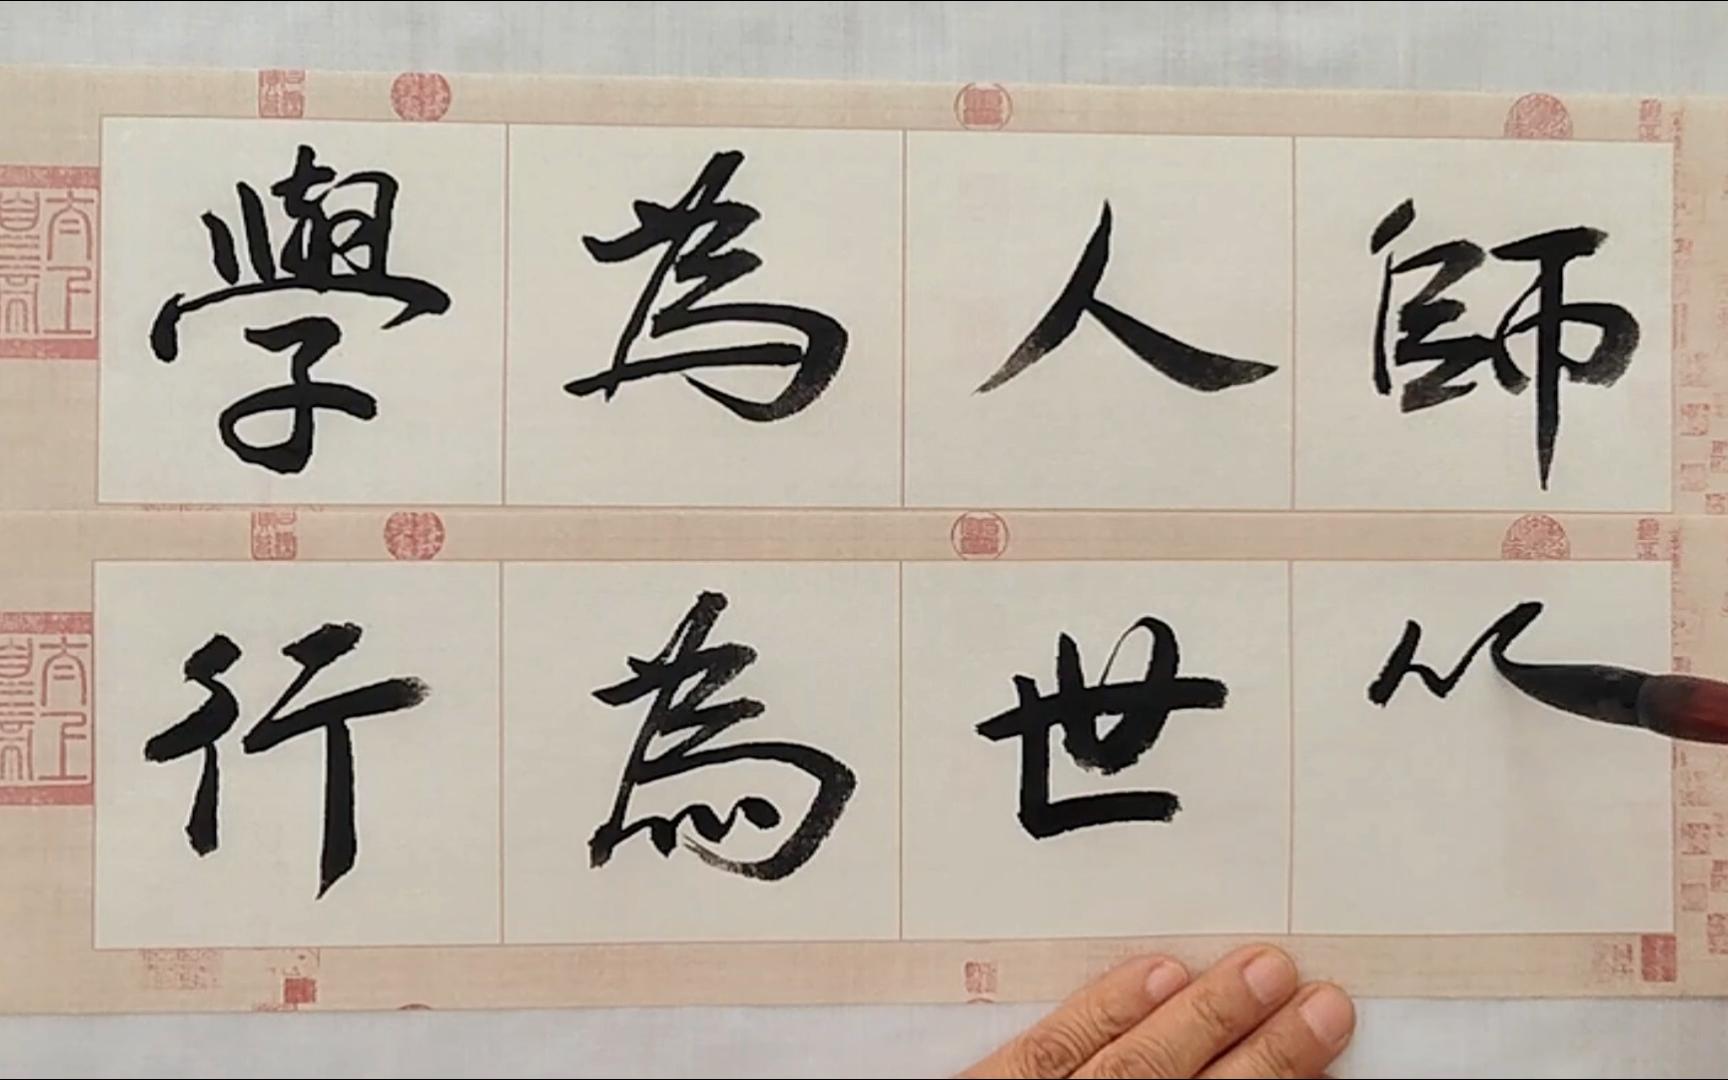 學為人師
行為世